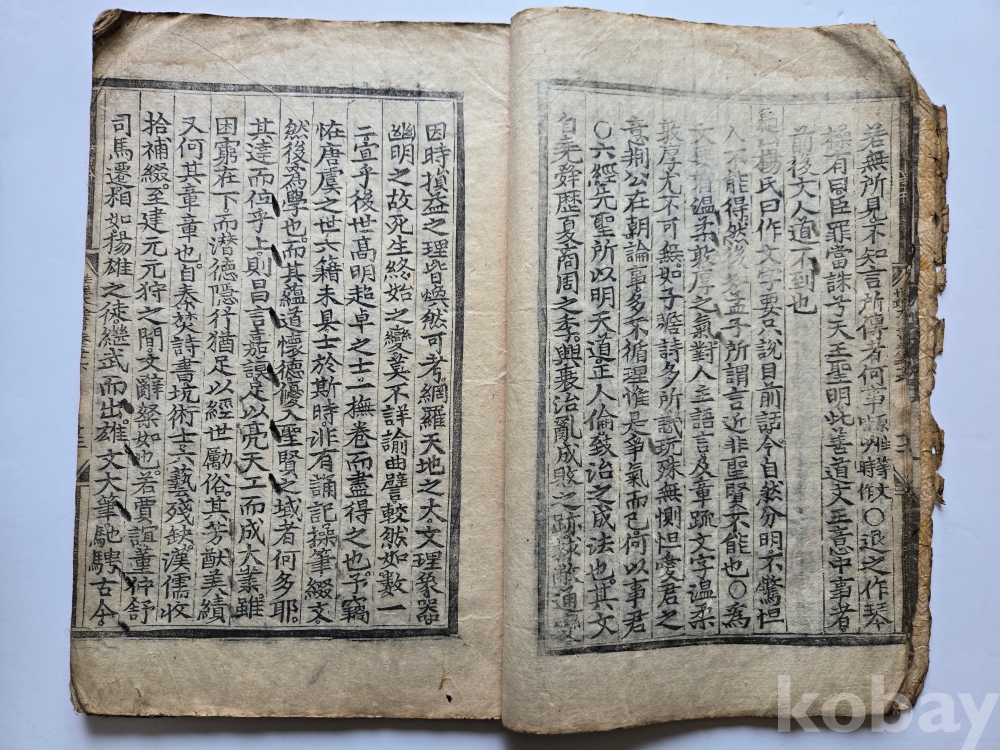 若無所見不知言所傳者何事原性等文皆少時作○退之作琴
操有曰臣罪當誅兮天王聖明此善道文王意中事者
前後文人道不到也
龜山楊氏曰作文字要只說目前話令自然分明不驚怛
人不能得然後知孟子所謂言近非聖賢不能也○爲
文要有溫柔敦厚之氣對人主語言及章疏文字溫柔
敦厚尤不可無如子瞻詩多所譏玩殊無惻怛愛君之
意荊公在朝論事多不循理惟是爭氣而已何以事君
○六經先聖所以明天道正人倫致治之成法也其文
自堯舜歷夏商周之季興衰治亂成敗之跡捄敝通變
因時損益之理皆煥然可考網羅天地之大文理象器
幽明之故死生終始之變莫不詳諭曲譬較然如數一
二宜乎後世高明超卓之士一撫卷而盡得之也予竊
恠唐虞之世六籍未具士於斯時非有誦記操筆綴文
然後爲學也而其蘊道懷德優入聖賢之域者何多耶
其達而位乎上則昌言嘉謨足以亮天工而成大業雖
困窮在下而潛德隱行猶足以經世勵俗其芳猷美績
又何其章章也自秦焚詩書坑術士六藝殘缺漢儒收
拾補綴至建元元狩之間文辭粲如也若賈誼董仲舒
司馬遷相如楊雄之徒繼武而出雄文大筆馳騁古今
kobay